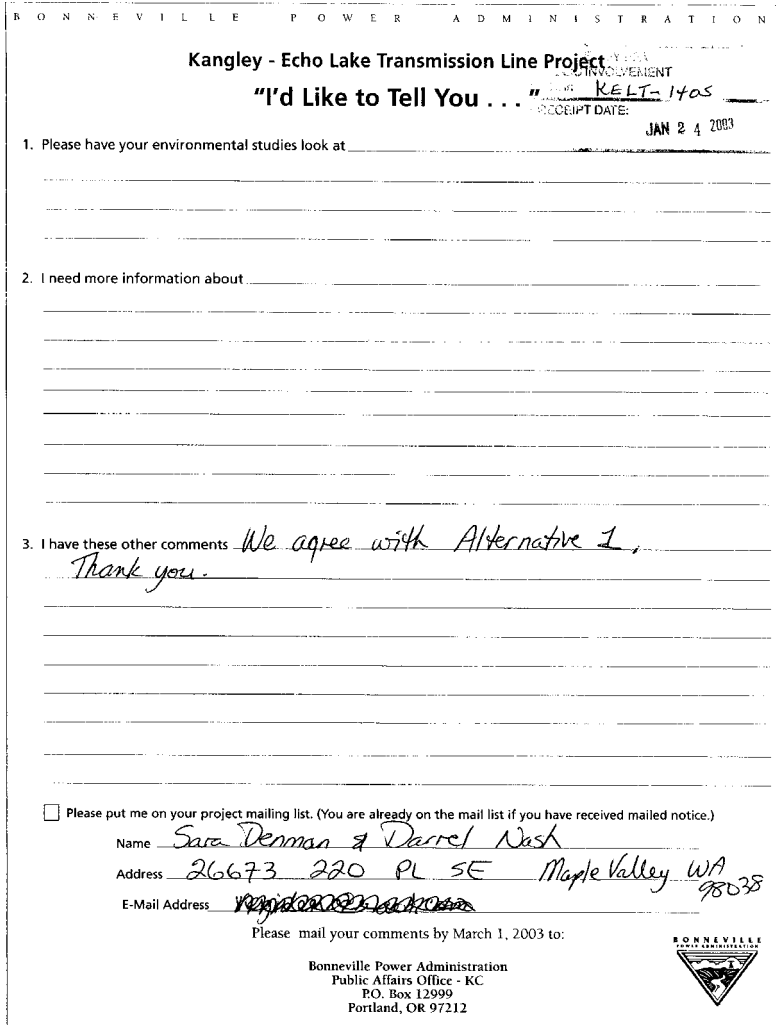 BONNEVILLE POWER ADMINISTRATION
Kangley - Echo Lake Transmission Line Project
INVOLVEMENT
"I'd Like to Tell You . . . " KELT-1405
RECEIPT DATE:
JAN 24 2003
1. Please have your environmental studies look at
2. I need more information about
3. I have these other comments We agree with Alternative 1,
Thank you.
Please put me on your project mailing list. (You are already on the mail list if you have received mailed notice.)
Name Sara Denman & Darrel Nash
Address 26673 220 PL SE Maple Valley WA
98038
E-Mail Address
Please mail your comments by March 1, 2003 to:
Bonneville Power Administration
Public Affairs Office - KC
P.O. Box 12999
Portland, OR 97212
BONNEVILLE
POWER ADMINISTRATION